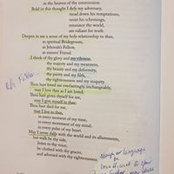 as the heaven of the communion.
Bold in this thought I defy my adversary,
tread down his temptations,
resist his schemings,
renounce the world,
am valiant for truth.
Deepen in me a sense of my holy relationship to thee,
as spiritual Bridegroom,
as Jehovah's Fellow,
as sinners' Friend.
I think of thy glory and my vileness,
thy majesty and my meanness,
thy beauty and my deformity,
thy purity and my filth,
thy righteousness and my iniquity.
Thou hast loved me everlastingly, unchangeably,
may I love thee as I am loved;
Thou hast given thyself for me,
may I give myself to thee;
Thou hast died for me,
may I live to thee,
in every moment of my time,
in every movement of my mind,
in every pulse of my heart.
May I never dally with the world and its allurements,
but walk by thy side,
listen to thy voice,
be clothed with thy graces,
and adorned with thy righteousness.